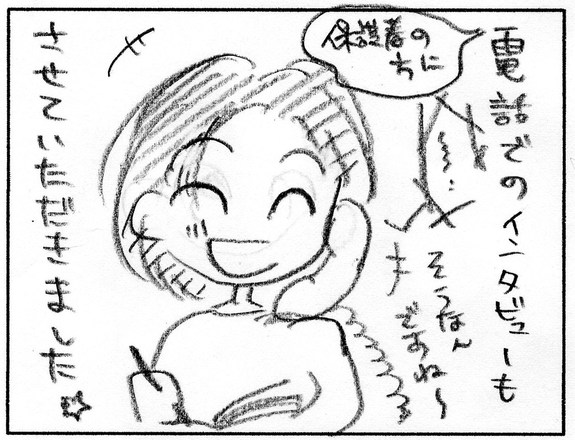 電話でのインタビューも
保護者の
方に
そうなん
ですね〜
させていただきました☆